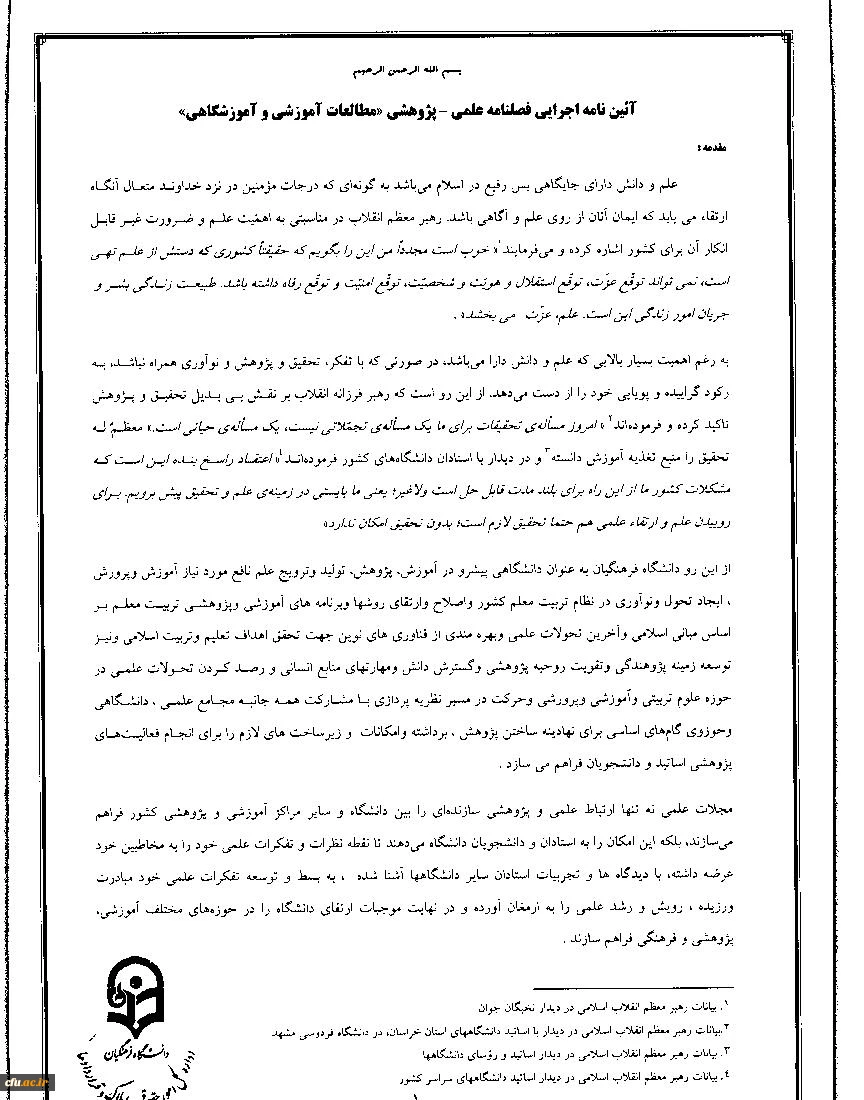 بسم الله الرحمن الرحیم
آئین نامه اجرایی فصلنامه علمی - پژوهشی «مطالعات آموزشی و آموزشگاهی»
مقدمه:
علم و دانش دارای جایگاهی بس رفیع در اسلام می‌باشد به گونه‌ای که درجات مؤمنین در نزد خداوند متعال آنگاه
ارتقاء می یابد که ایمان آنان از روی علم و آگاهی باشد. رهبر معظم انقلاب در مناسبتی به اهمیت علم و ضرورت غیر قابل
انکار آن برای کشور اشاره کرده و می‌فرمایند۱« خوب است مجدداً من این را بگویم که حقیقتاً کشوری که دستش از علم تهی
است، نمی تواند توقع عزّت، توقّع استقلال و هویّت و شخصیّت، توقّع امنیّت و توقّع رفاه داشته باشد. طبیعت زندگی بشر و
جریان امور زندگی این است. علم، عزّت می بخشد» .
به رغم اهمیت بسیار بالایی که علم و دانش دارا می‌باشد، در صورتی که با تفکر، تحقیق و پژوهش و نوآوری همراه نباشد، به
رکود گراییده و پویایی خود را از دست می‌دهد. از این رو است که رهبر فرزانه انقلاب بر نقش بی بدیل تحقیق و پژوهش
تاکید کرده و فرموده‌اند۲ « امروز مسأله‌ی تحقیقات برای ما یک مسأله‌ی تجمّلاتی نیست، یک مسأله‌ی حیاتی است.» معظم‌ٌ له
تحقیق را منبع تغذیه آموزش دانسته۳ و در دیدار با استادان دانشگاه‌های کشور فرموده‌اند۴« اعتقاد راسخ بنده این است که
مشکلات کشور ما از این راه برای بلند مدت قابل حل است ولاغیر؛ یعنی ما بایستی در زمینه‌ی علم و تحقیق پیش برویم. برای
روییدن علم و ارتقاء علمی هم حتما تحقیق لازم است؛ بدون تحقیق امکان ندارد»
از این رو دانشگاه فرهنگیان به عنوان دانشگاهی پیشرو در آموزش، پژوهش، تولید وترویج علم نافع مورد نیاز آموزش وپرورش
، ایجاد تحول ونوآوری در نظام تربیت معلم کشور واصلاح وارتقای روشها وبرنامه های آموزشی وپژوهشی تربیت معلم بر
اساس مبانی اسلامی وآخرین تحولات علمی وبهره مندی از فناوری های نوین جهت تحقق اهداف تعلیم وتربیت اسلامی ونیز
توسعه زمینه پژوهندگی وتقویت روحیه پژوهشی وگسترش دانش ومهارتهای منابع انسانی و رصد کردن تحولات علمی در
حوزه علوم تربیتی وآموزشی وپرورشی وحرکت در مسیر نظریه پردازی با مشارکت همه جانبه مجامع علمی ، دانشگاهی
وحوزوی گام‌های اساسی برای نهادینه ساختن پژوهش ، برداشته وامکانات و زیرساخت های لازم را برای انجام فعالیت‌های
پژوهشی اساتید و دانشجویان فراهم می سازد .
مجلات علمی نه تنها ارتباط علمی و پژوهشی سازنده‌ای را بین دانشگاه و سایر مراکز آموزشی و پژوهشی کشور فراهم
می‌سازند، بلکه این امکان را به استادان و دانشجویان دانشگاه می‌دهند تا نقطه نظرات و تفکرات علمی خود را به مخاطبین خود
عرضه داشته، با دیدگاه ها و تجربیات استادان سایر دانشگاهها آشنا شده ، به بسط و توسعه تفکرات علمی خود مبادرت
ورزیده ، رویش و رشد علمی را به ارمغان آورده و در نهایت موجبات ارتقای دانشگاه را در حوزه‌های مختلف آموزشی،
پژوهشی و فرهنگی فراهم سازند .
۱. بیانات رهبر معظم انقلاب اسلامی در دیدار نخبگان جوان
۲.بیانات رهبر معظم انقلاب اسلامی در دیدار با اساتید دانشگاههای استان خراسان، در دانشگاه فردوسی مشهد
۳. بیانات رهبر معظم انقلاب اسلامی در دیدار اساتید و رؤسای دانشگاهها
۴. بیانات رهبر معظم انقلاب اسلامی در دیدار اساتید دانشگاههای سراسر کشور
۱
دانشگاه فرهنگیان
cfu.ac.ir